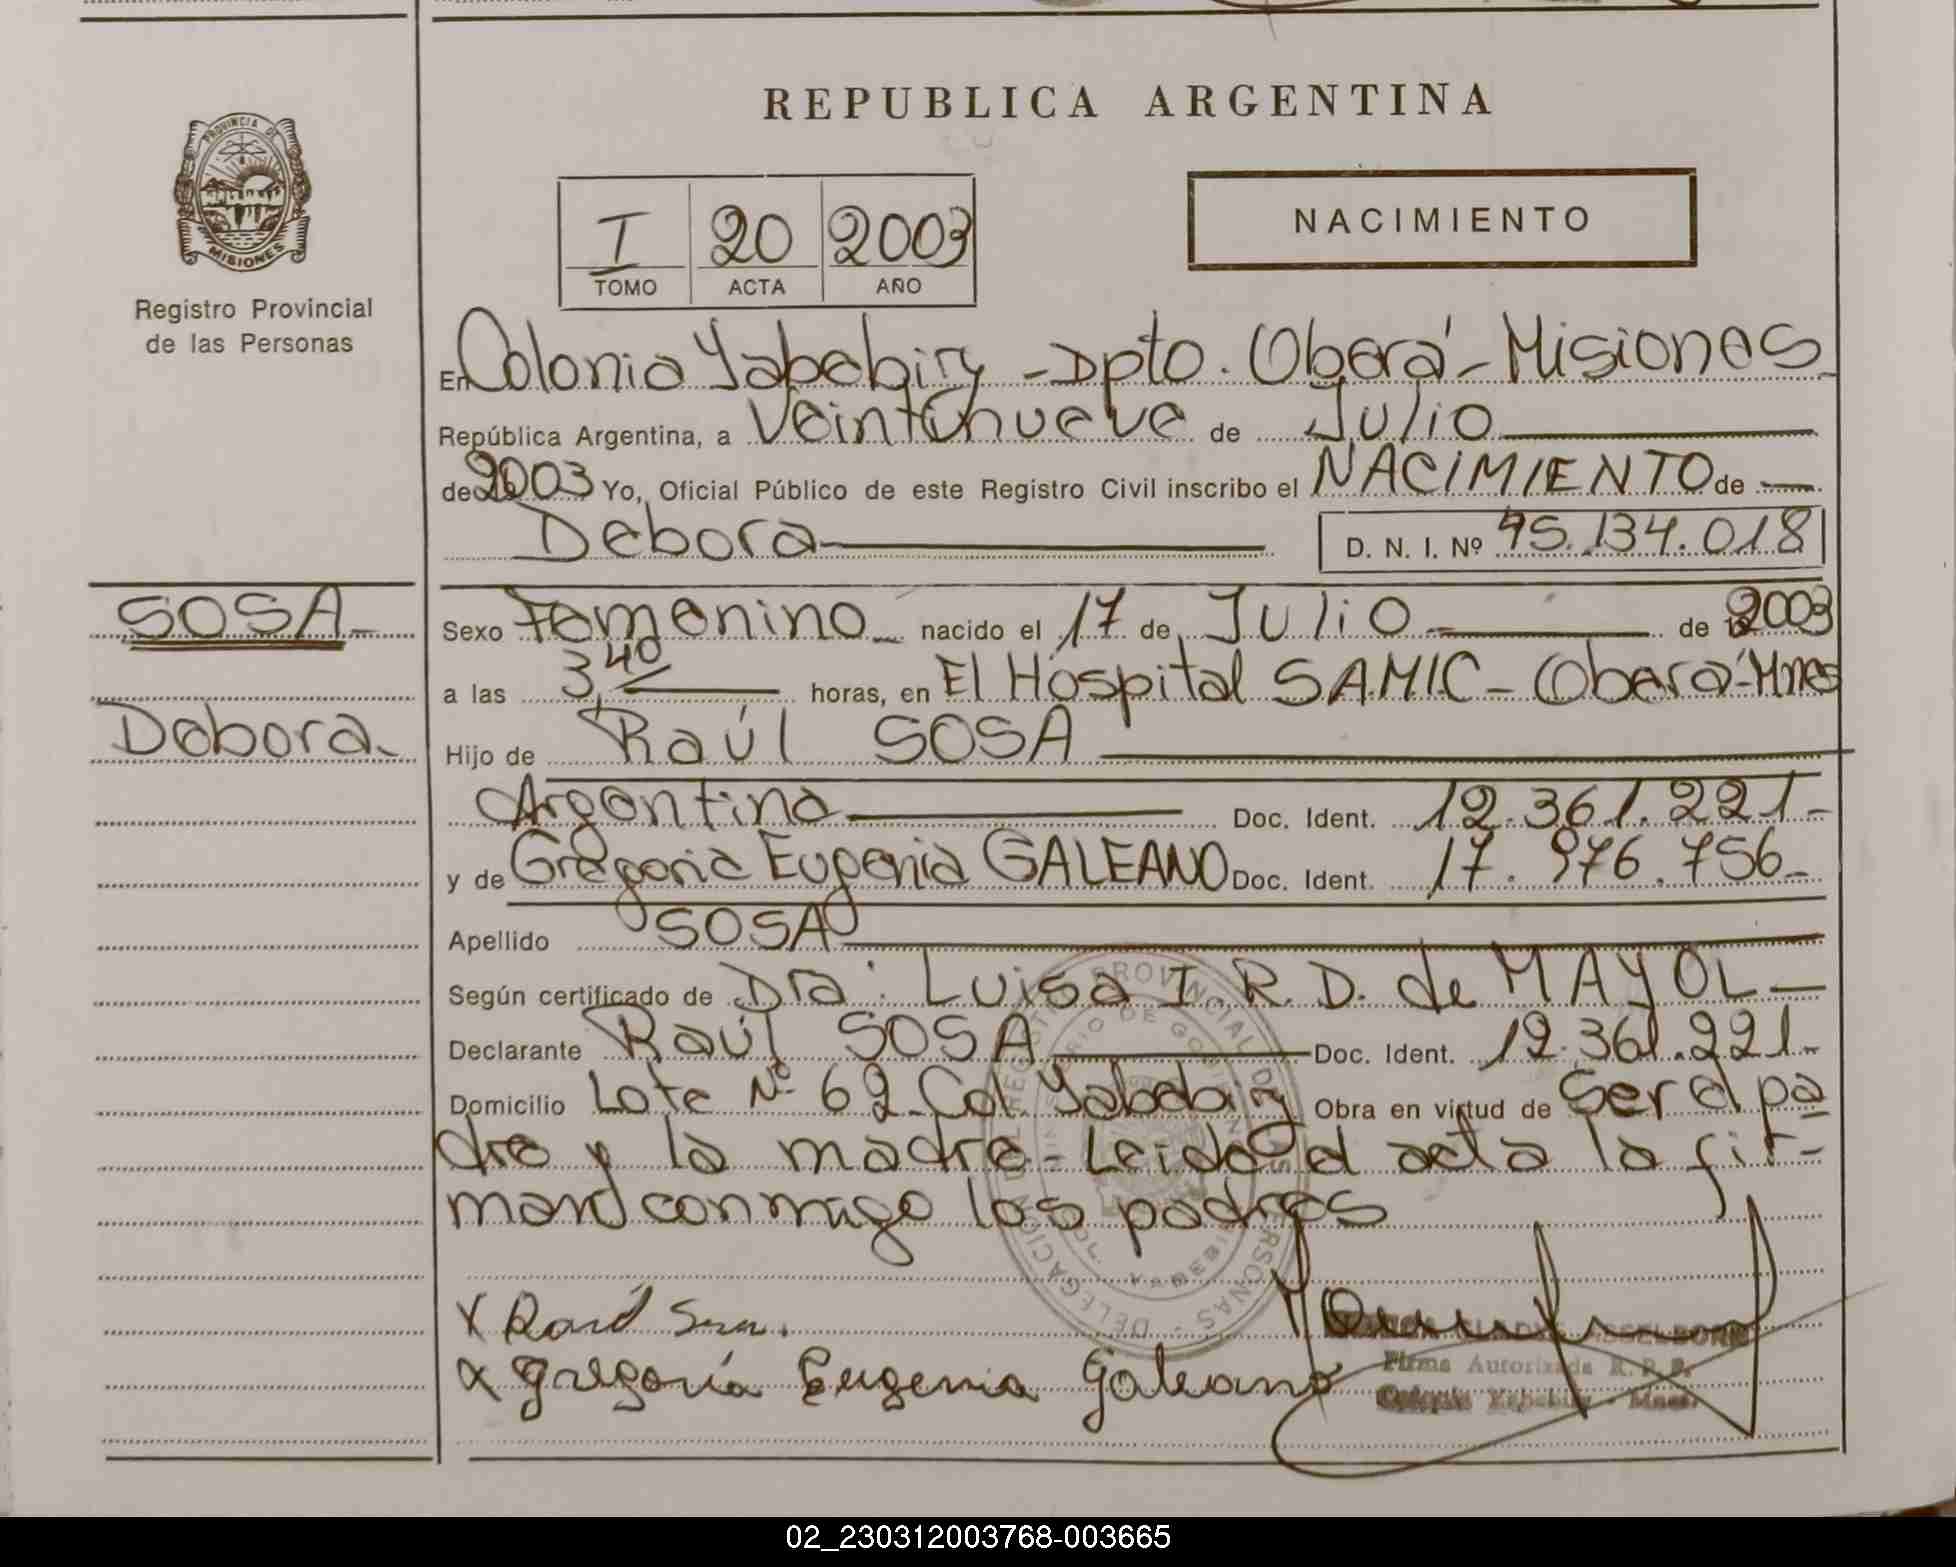 REPUBLICA ARGENTINA
PROVINCIA DE
MISIONES
Registro Provincial
de las Personas
I 20 2003
TOMO ACTA AÑO
NACIMIENTO
En Colonia Yabebiry - Dpto. Oberá - Misiones
República Argentina, a Veintinueve de Julio
de 2003 Yo, Oficial Público de este Registro Civil inscribo el NACIMIENTO de
Debora D. N. I. Nº 45.134.018
SOSA
Sexo Femenino nacido el 17 de Julio de 2003
a las 3,40 horas, en El Hospital SAMIC - Oberá - Mnes
Debora
Hijo de Raúl SOSA
Argentina Doc. Ident. 12.361.221-
y de Gregoria Eugenia GALEANO Doc. Ident. 17.976.756-
Apellido SOSA
Según certificado de Dra: Luisa I. R. D. de MAYOL
Declarante Raúl SOSA Doc. Ident. 12.361.221-
Domicilio Lote Nº 62 - Col. Yabebiry Obra en virtud de ser el pa-
dre y la madre - Leida el acta la fir-
man conmigo los padres
X Raul Sosa.
X Gregoria Eugenia Galeano
Firma Autorizada R. P. P.
Colonia Yabebiry - Mnes.
02_230312003768-003665